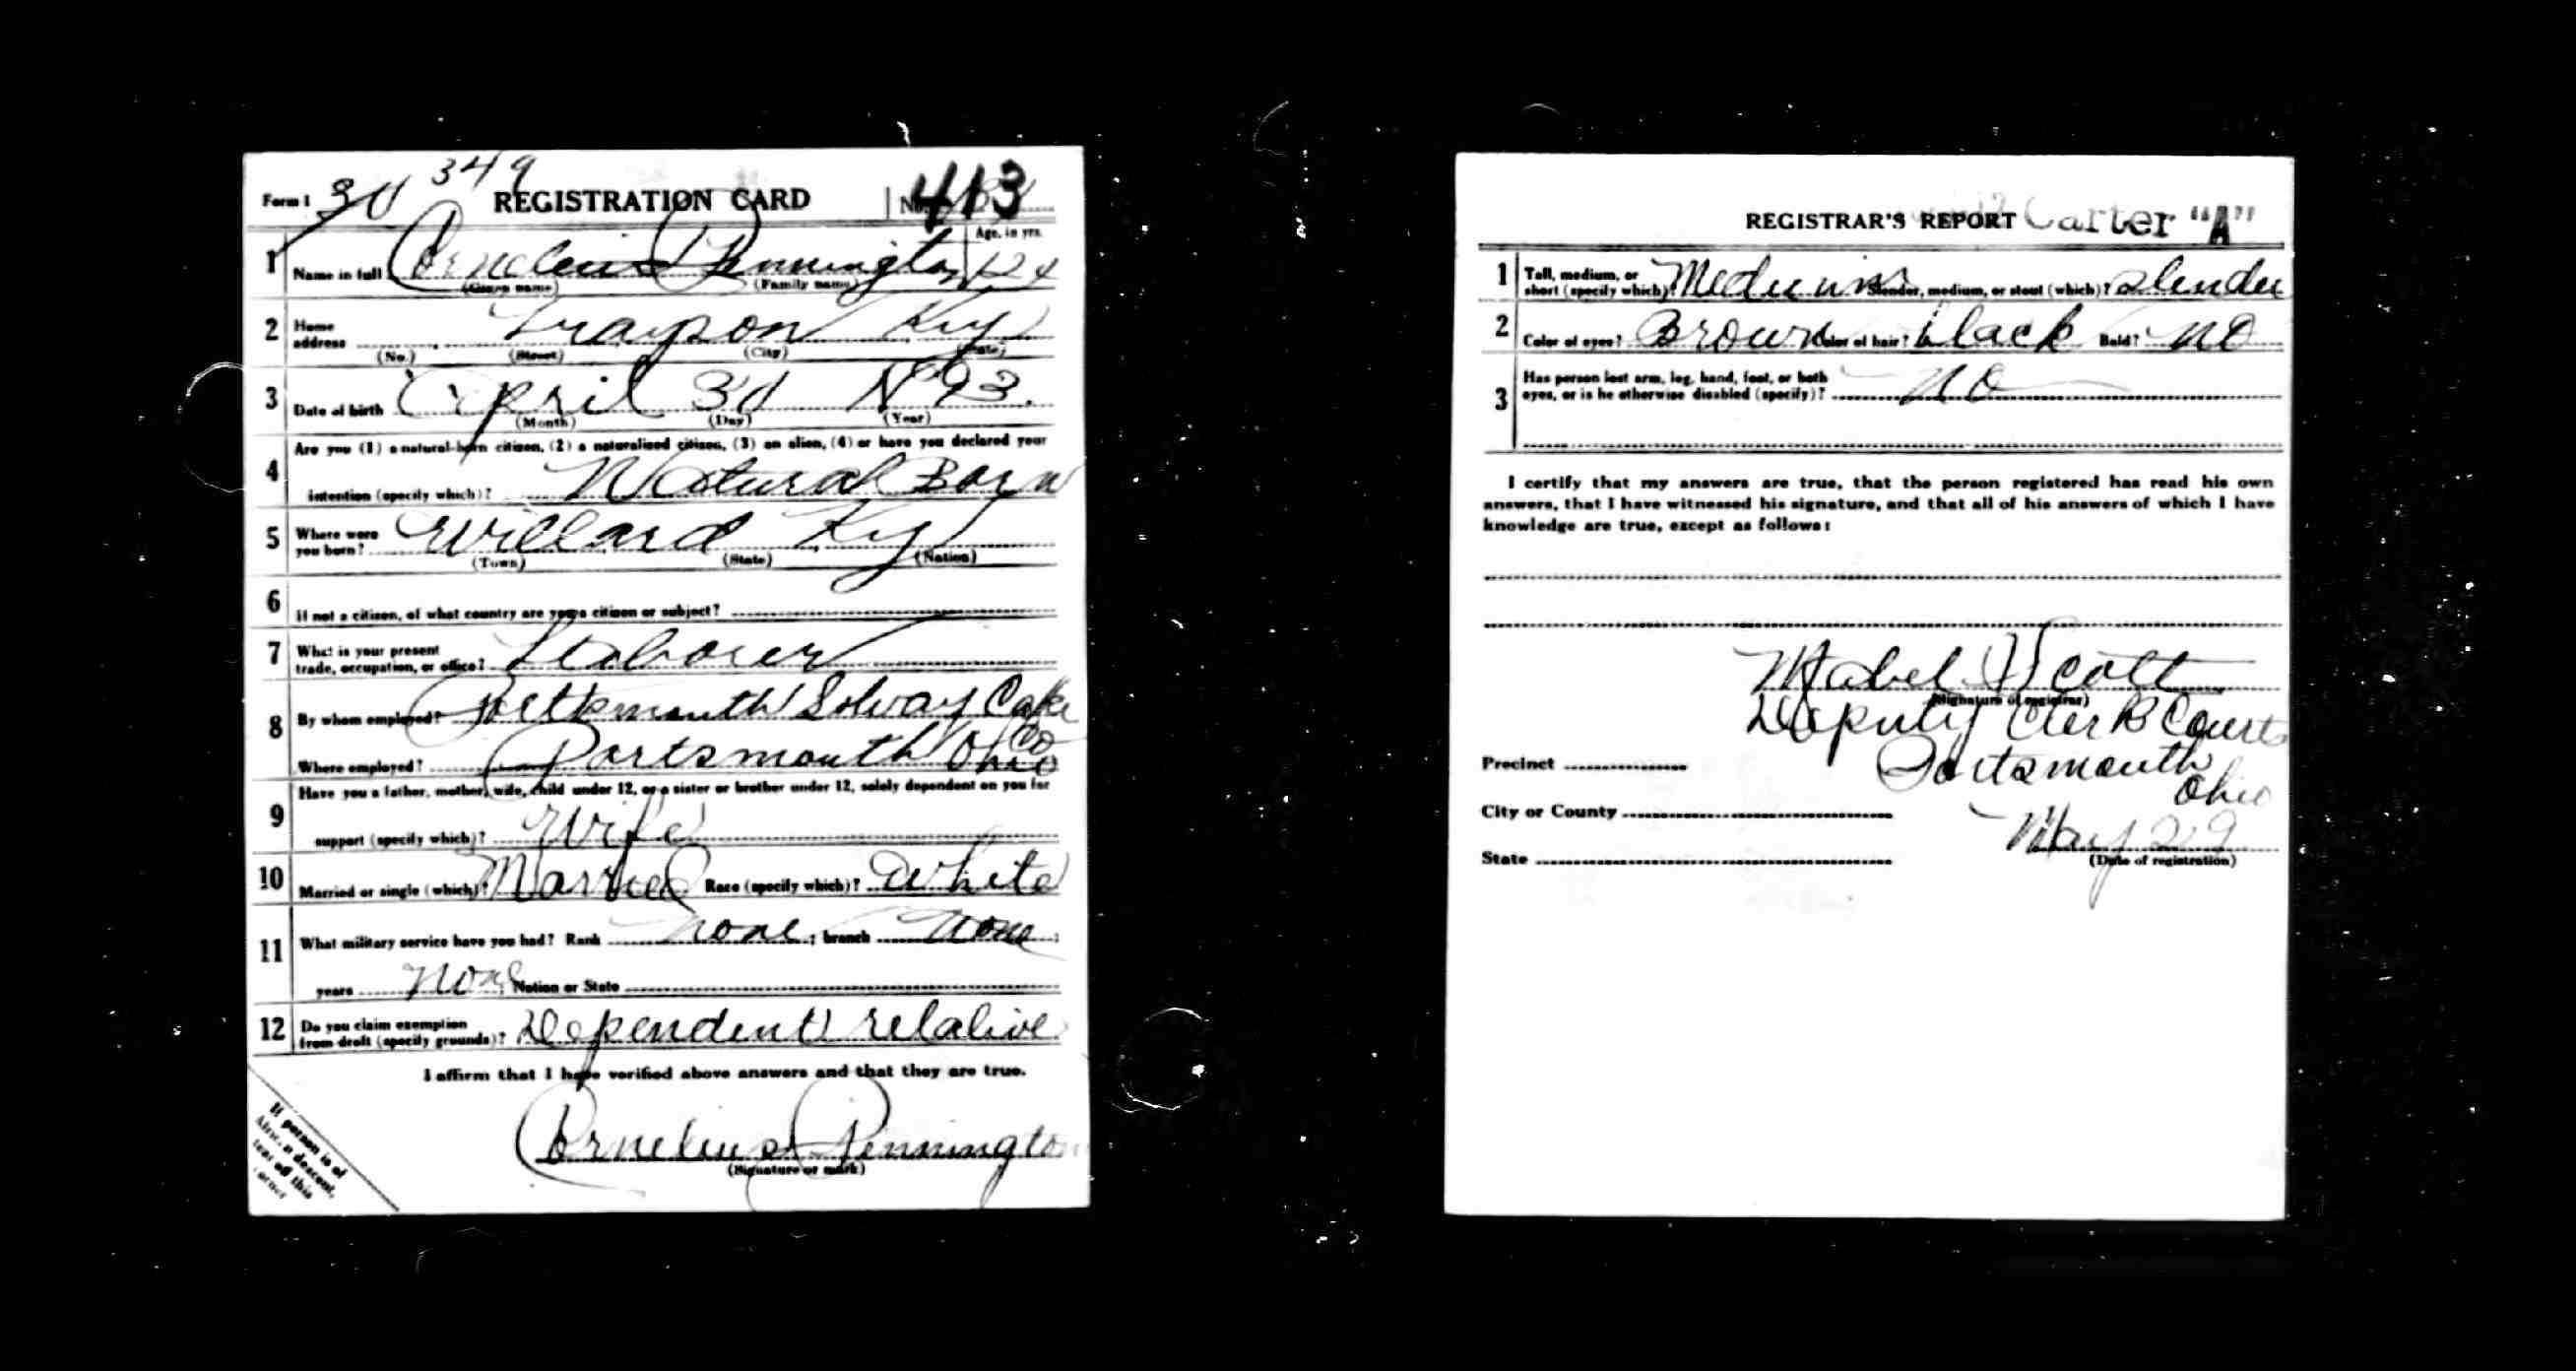 349
Form 1 REGISTRATION CARD No. 413
Age, in yrs.
1 Name in full Cornelius Pennington 24
(Given name) (Family name)
2 Home address Grayson Ky
(No.) (Street) (City) (State)
3 Date of birth April 30 1893
(Month) (Day) (Year)
4 Are you (1) a natural-born citizen, (2) a naturalized citizen, (3) an alien, (4) or have you declared your
intention (specify which)? Natural Born
5 Where were you born? Willard Ky
(Town) (State) (Nation)
6 If not a citizen, of what country are you a citizen or subject?
7 What is your present trade, occupation, or office? Laborer
8 By whom employed? Portsmouth Solvay Coke Co
Where employed? Portsmouth Ohio
9 Have you a father, mother, wife, child under 12, or a sister or brother under 12, solely dependent on you for
support (specify which)? Wife
10 Married or single (which)? Married Race (specify which)? White
11 What military service have you had? Rank none; branch none;
years none; Nation or State
12 Do you claim exemption from draft (specify grounds)? Dependent relative
I affirm that I have verified above answers and that they are true.
Cornelius Pennington
(Signature or mark)
If person is of
African descent,
tear off this
corner
REGISTRAR'S REPORT Carter "A"
1 Tall, medium, or short (specify which)? Medium Slender, medium, or stout (which)? slender
2 Color of eyes? Brown Color of hair? black Bald? no
3 Has person lost arm, leg, hand, foot, or both
eyes, or is he otherwise disabled (specify)? no
I certify that my answers are true, that the person registered has read his own
answers, that I have witnessed his signature, and that all of his answers of which I have
knowledge are true, except as follows:
Mabel Scott
(Signature of registrar)
Deputy Clerk Courts
Precinct Portsmouth
Ohio
City or County
May 29
State (Date of registration)